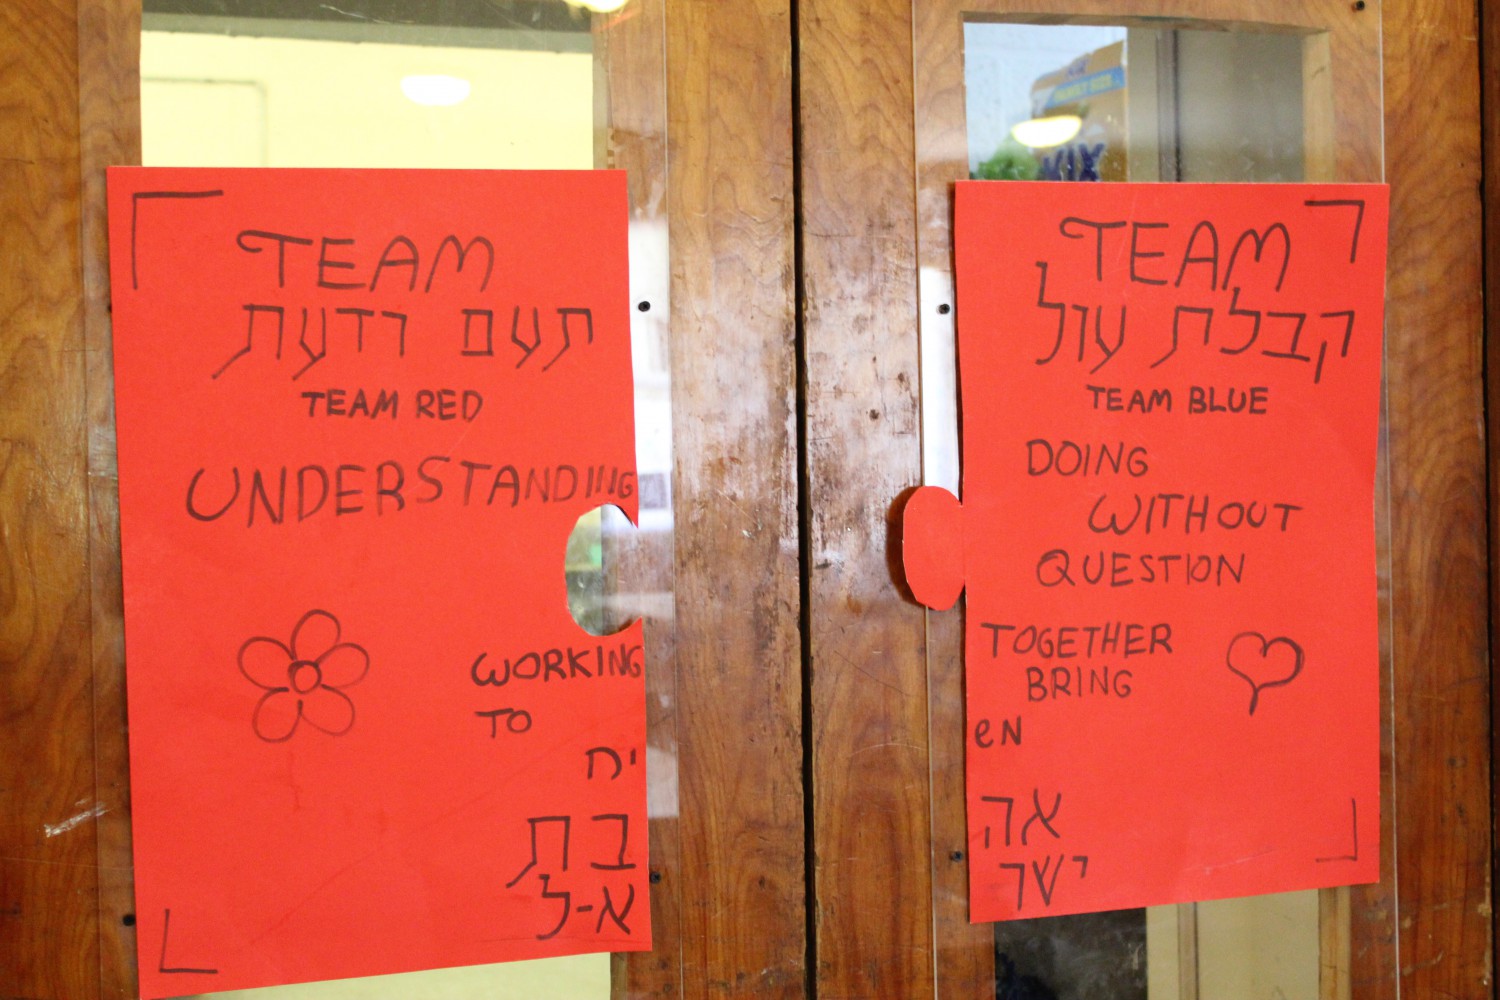 TEAM
תעם ודעת
TEAM RED
UNDERSTANDING
WORKING
TO
יח
בת
א-ל
KIX
FAMILY SIZE
TEAM
קבלת עול
TEAM BLUE
DOING
WITHOUT
QUESTION
TOGETHER
BRING
eN
אה
ישר